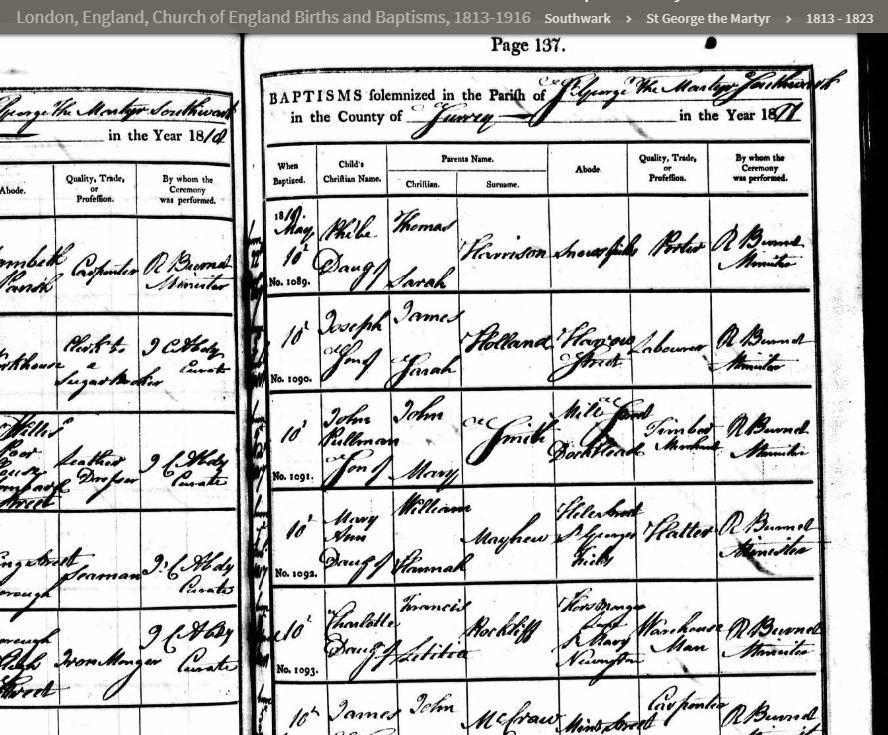 London, England, Church of England Births and Baptisms, 1813-1916 Southwark › St George the Martyr › 1813 - 1823
Page 137.
George The Martyr Southwark
in the Year 18
Abode.
Quality, Trade,
or
Profession.
By whom the
Ceremony
was performed.
Parish
Carpenter
R Burnet
Minister
Clerk to
a
Sugar
J C Abdy
Curate
Leather
Dresser
J C Abdy
Curate
Street
Seaman
J C Abdy
Curate
Iron Monger
J C Abdy
Curate
Street
BAPTISMS solemnized in the Parish of St George The Martyr Southwark
in the County of Surrey in the Year 18
When
Baptized.
Child's
Christian Name.
Parents Name.
Christian.
Surname.
Abode.
Quality, Trade,
or
Profession.
By whom the
Ceremony
was performed.
May
10
No. 1089.
Phebe
Daug of
Thomas
Sarah
Harrison
Snowsfields
Porter
R Burnet
Minister
10
No. 1090.
Joseph
Son of
James
Sarah
Holland
Harrow
Street
Labourer
R Burnet
Minister
10
No. 1091.
John
Pullman
Son of
John
Mary
Smith
Mill Street
Dockhead
Timber
Merchant
R Burnet
Minister
10
No. 1092.
Mary
Ann
Daug of
William
Hannah
Mayhew
St Georges
Fields
Hatter
R Burnet
Minister
10
No. 1093.
Charlotte
Daug of
Francis
Letitia
Rockliff
St Mary
Newington
Warehouse
Man
R Burnet
Minister
10
James
John
McCraw
Mint Street
Carpenter
R Burnet